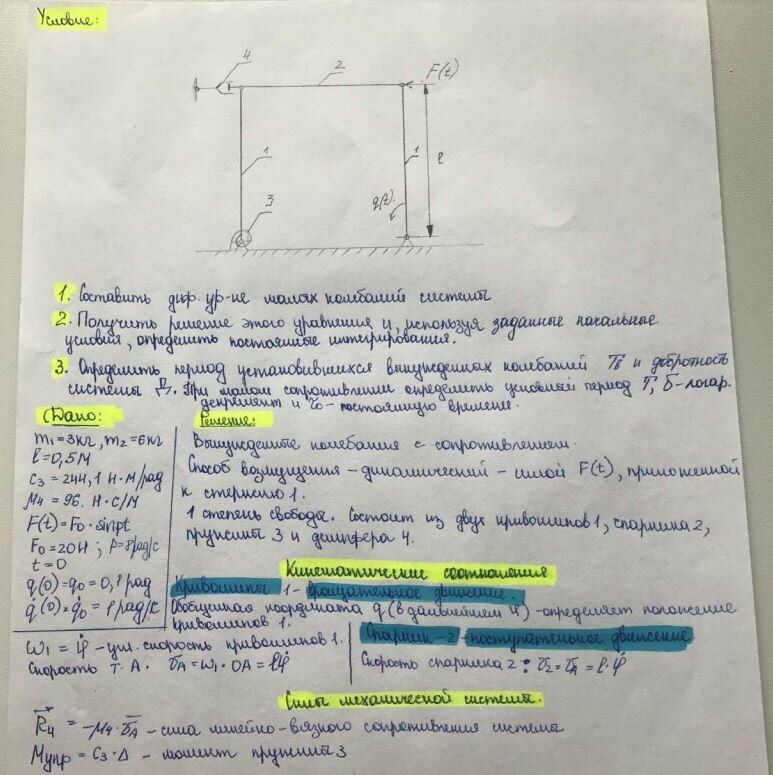 Условие:
4
2
F(t)
1
1
l
q(t)
3
1. Составить диф. ур-ие малых колебаний системы
2. Получить решение этого уравнения и, используя заданные начальные
условия, определить постоянные интегрирования.
3. Определить период установившихся вынужденных колебаний Tв и добротность
системы Д. При малом сопротивлении определить условный период T, δ-логар.
декремент и τ0 - постоянную времени.
Дано:
m1 = 3кг, m2 = 6кг
l = 0,5м
c3 = 244,1 Н·м/рад
μ4 = 96. Н·с/м
F(t) = F0 · sinpt
F0 = 20Н ; p = 8рад/с
t = 0
q(0) = q0 = 0,1 рад
q̇(0) = q̇0 = 1 рад/с
Решение:
Вынужденные колебания с сопротивлением.
Способ возмущения - динамический - силой F(t), приложенной
к стержню 1.
1 степень свободы. Состоит из двух кривошипов 1, спарника 2,
пружины 3 и демпфера 4.
Кинематические соотношения
Кривошипы 1 - вращательное движение.
Обобщенная координата q (в дальнейшем φ) - определяет положение
кривошипов 1.
ω1 = φ̇ - угл. скорость кривошипов 1.
Скорость т. А. vA = ω1 · OA = lφ̇
Спарник - 2 - поступательное движение.
Скорость спарника 2 : v2 = vA = l · φ̇
Силы механической системы.
R4 = -μ4 · vA - сила линейно-вязкого сопротивления системы
Mупр = c3 · Δ - момент пружины 3